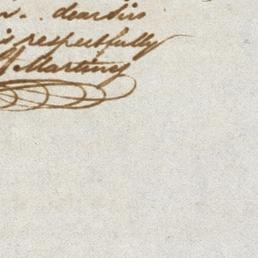 dear Sir
respectfully
Martinez